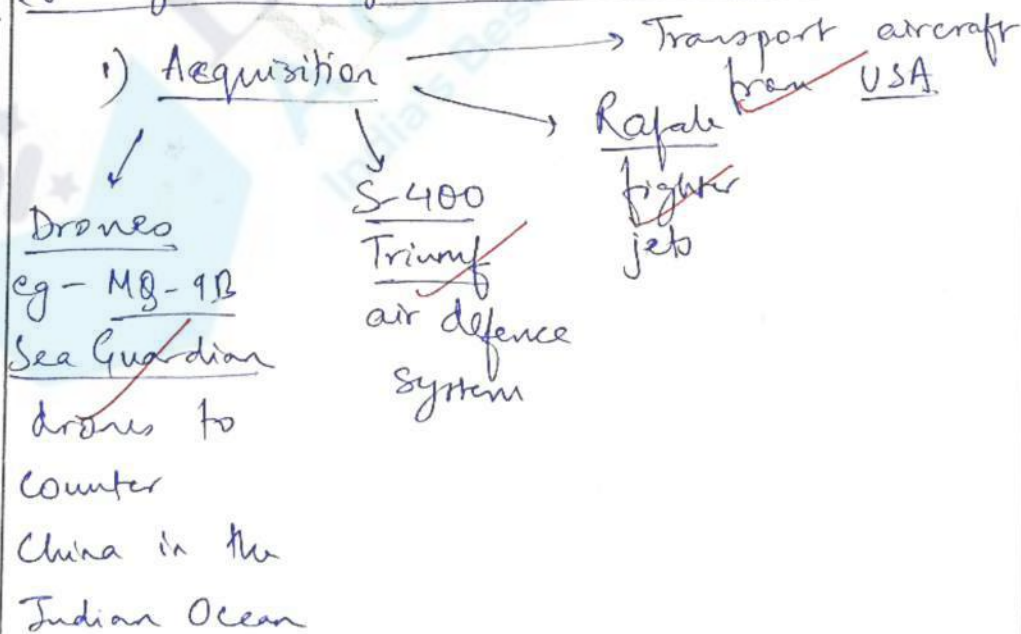 1) Acquisition
Transport aircraft
from USA
Rafale
fighter
jets
S-400
Triumf
air defence
system
Drones
eg - MQ-9B
Sea Guardian
drones to
counter
China in the
Indian Ocean
India's Des